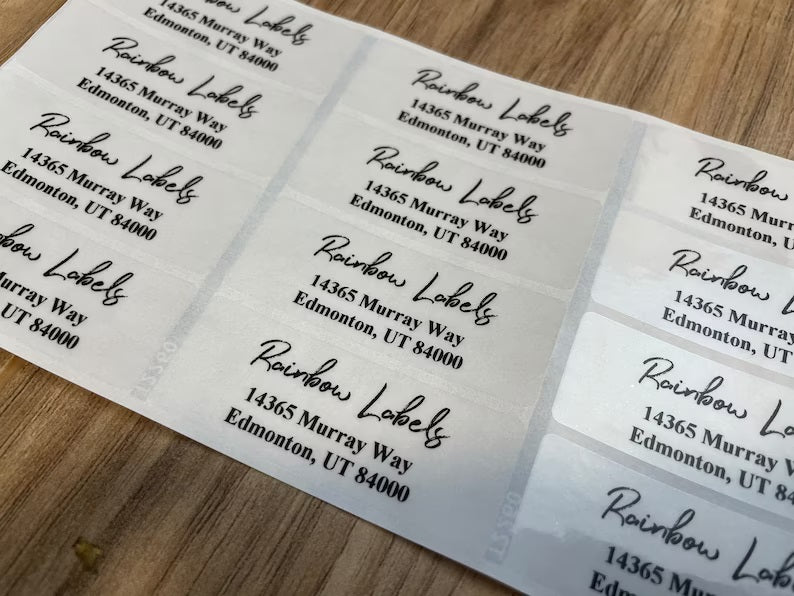 Labels
14365 Murray Way
Edmonton, UT 84000
Rainbow Labels
14365 Murray Way
Edmonton, UT 84000
Rainbow Labels
14365 Murray Way
Edmonton, UT 84000
Labels
Murray Way
UT 84000
Rainbow Labels
14365 Murray Way
Edmonton, UT 84000
Rainbow Labels
14365 Murray Way
Edmonton, UT 84000
Rainbow Labels
14365 Murray Way
Edmonton, UT 84000
Rainbow Labels
14365 Murray Way
Edmonton, UT 84000
Rainbow
14365 Murr
Edmonton, U
Rainbow L
14365 Murray
Edmonton, UT
Rainbow La
14365 Murray W
Edmonton, UT 84
Rainbow Labe
14365 Murra
Edm